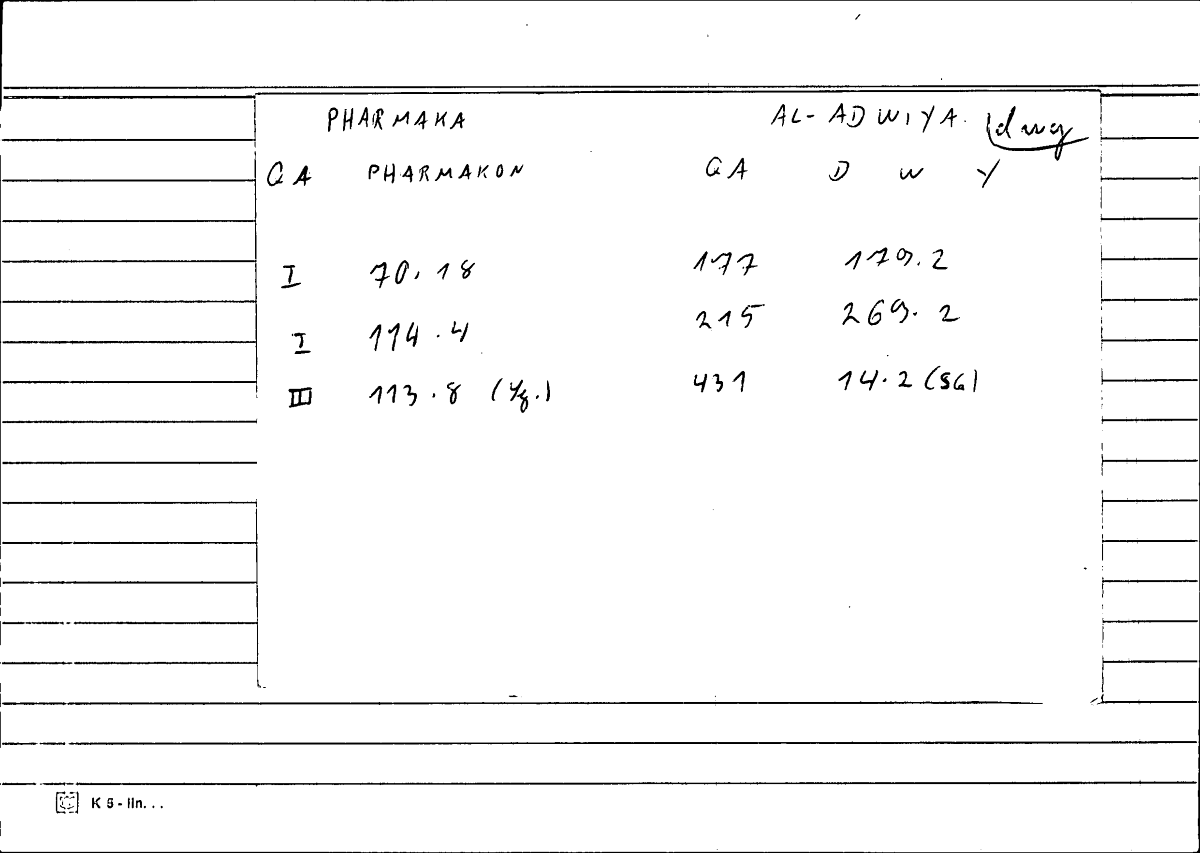 PHARMAKA AL-ADWIYA. dwy
GA PHARMAKON GA D W Y
I 70.18 177 179.2
I 114.4 215 269.2
III 113.8 (Yg.) 431 14.2 (SG)
K 5 - lin. . .